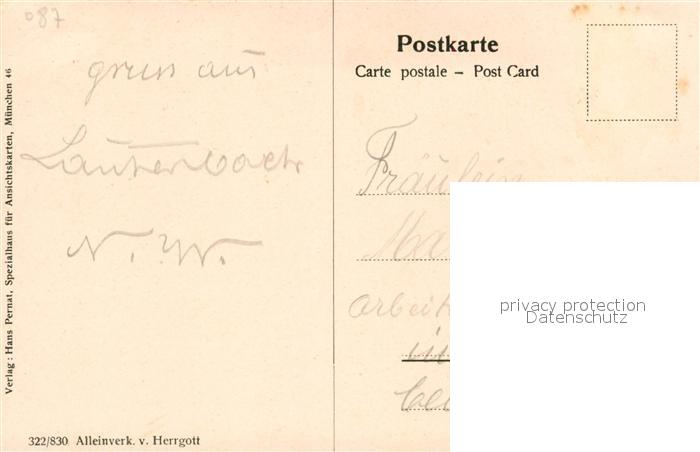 087
Verlag: Hans Pernat, Spezialhaus für Ansichtskarten, München 46
gruss aus
Lauterbach
N. W.
322/830 Alleinverk. v. Herrgott
Postkarte
Carte postale – Post Card
Fräulein
Ma
arbeit
in
privacy protection
Datenschutz